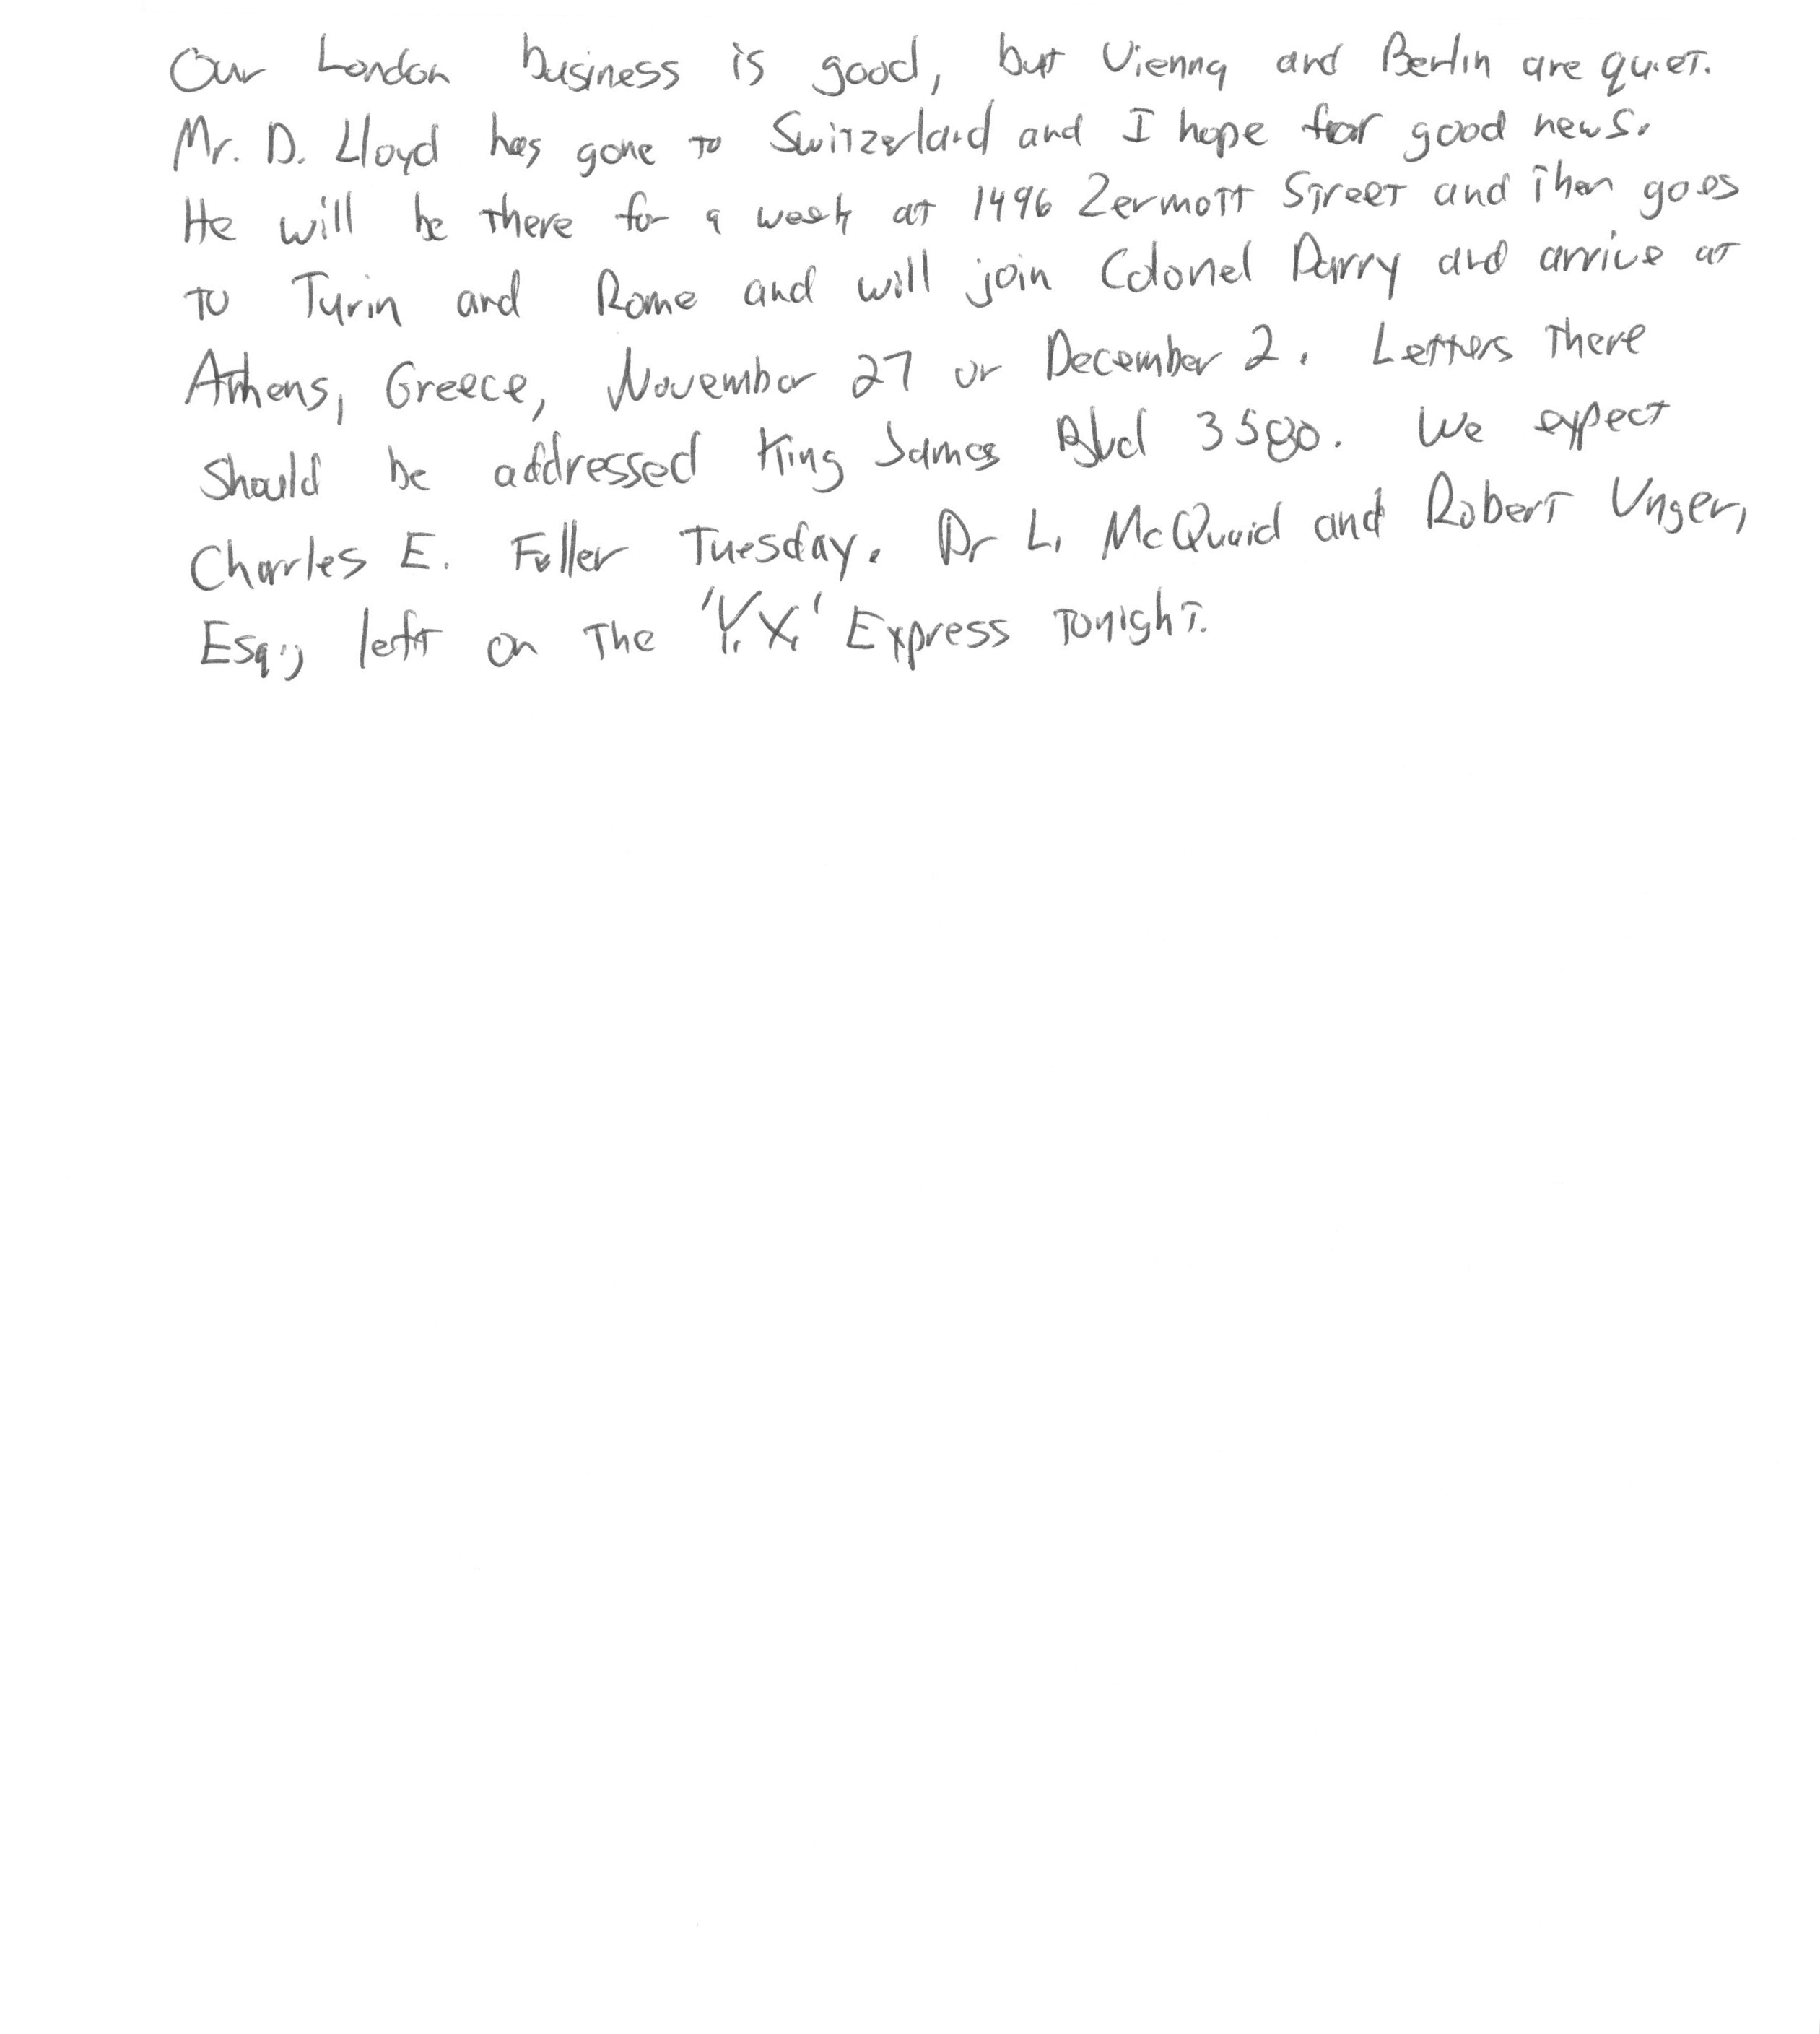 Our London business is good, but Vienna and Berlin are quiet.
Mr. D. Lloyd has gone to Switzerland and I hope for good news.
He will be there for a week at 1496 Zermott Street and then goes
to Turin and Rome and will join Colonel Parry and arrive at
Athens, Greece, November 27 or December 2. Letters there
should be addressed King James Blvd 3580. We expect
Charles E. Fuller Tuesday. Dr L. McQuaid and Robert Unger,
Esq., left on the 'Y.X.' Express tonight.